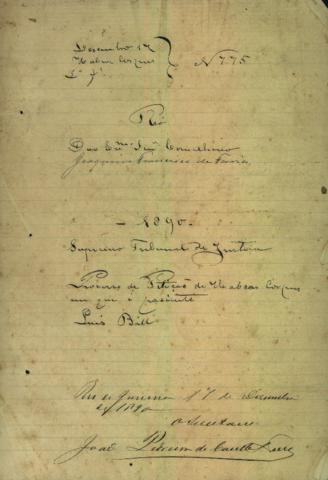 Dezembro 17
Habeas Corpus
N 775
Rio
Do Exmo Snr Conselheiro
Joaquim Francisco de Faria
— 1890 —
Supremo Tribunal de Justiça
Processo de Petição de Habeas Corpus
em que é paciente
Luis Bill
Rio de Janeiro 17 de Dezembro
de 1890
O Secretario
João Pedreira do Couto Ferraz